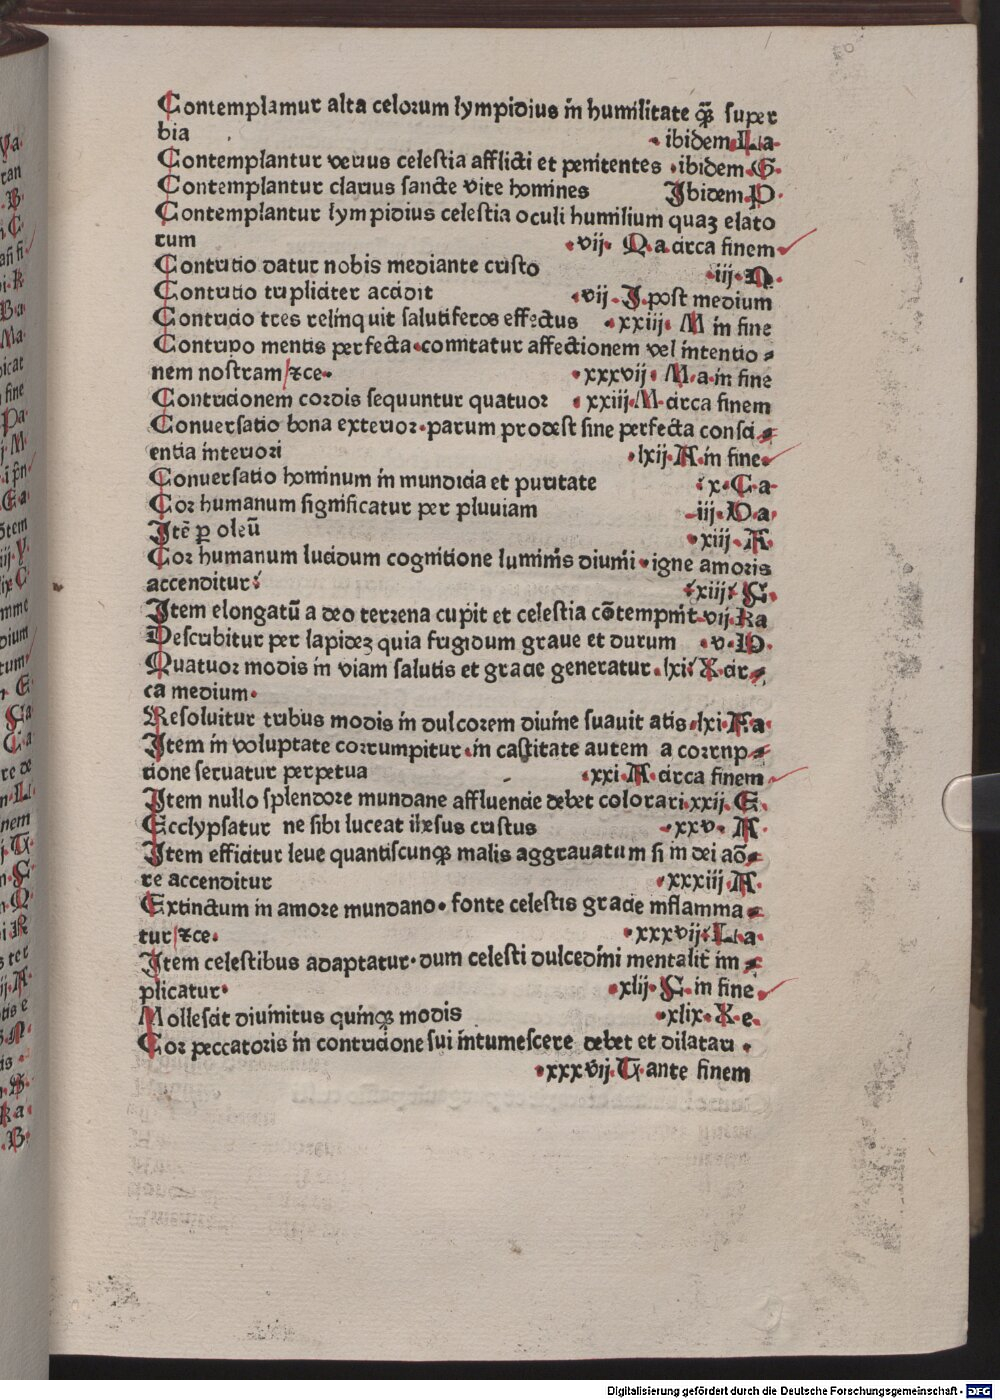 Contemplamur alta celorum lympidius in humilitate qȝ̄ super
bia · ibidem La·
Contemplantur verius celestia afflicti et penitentes ·ibidem·G·
Contemplantur clarius sancte vite homines Ibidem P·
Contemplantur lympidius celestia oculi humilium quaȝ elato
rum ·vij· Q a circa finem
Contritio datur nobis mediante cristo ·iij·
Contritio tripliciter accidit ·vij·I·post medium
Contricio tres relinquit salutiferos effectus ·xxiij· M in fine
Contritio mentis perfecta·comitatur affectionem vel intentio⸗
nem nostram/ꝛce· ·xxxvij· M·a·in fine
Contricionem cordis sequuntur quatuor ·xxiij·M·circa finem
Conuersatio bona exterior·parum prodest sine perfecta consci⸗
entia interiori ·lxij·A·in fine·
Conuersatio hominum in mundicia et puritate ix·C·a·
Cor humanum significatur per pluuiam ·iij·D·a·
Itē ꝑ oleū ·xiij·A·
Cor humanum lucidum cognitione luminis diuini·igne amoris
accenditur: ·xiij·C·
Item elongatū a deo terrena cupit et celestia cōtempnit·vij·ka
Describitur per lapideȝ quia frigidum graue et durum ·v·D·
Quatuor modis in viam salutis et gracie generatur·lxi·X·cir⸗
ca medium·
Resoluitur tribus modis in dulcorem diuine suauitatis·lxi·F·a·
Item in voluptate corrumpitur·in castitate autem a corrup⸗
tione seruatur perpetua ·xxi·A·circa finem
Item nullo splendore mundane affluencie debet colorari·xxij·E·
Ecclypsatur ne sibi luceat ihesus cristus ·xxv·A·
Item efficitur leue quantiscunqȝ malis aggrauatum si in dei aō⸗
re accenditur ·xxxiij·A·
Extinctum in amore mundano·fonte celestis gracie inflamma⸗
tur/ꝛce· ·xxxvij·L·a·
Item celestibus adaptatur·dum celesti dulcedini mentalit̄ im⸗
plicatur· ·xlij·C·in fine
Mollescit diuinitus quinqȝ modis ·xlix·X·e·
Cor peccatoris in contricione sui intumescere debet et dilatari·
·xxxvij·T·ante finem
Digitalisierung gefördert durch die Deutsche Forschungsgemeinschaft · DFG